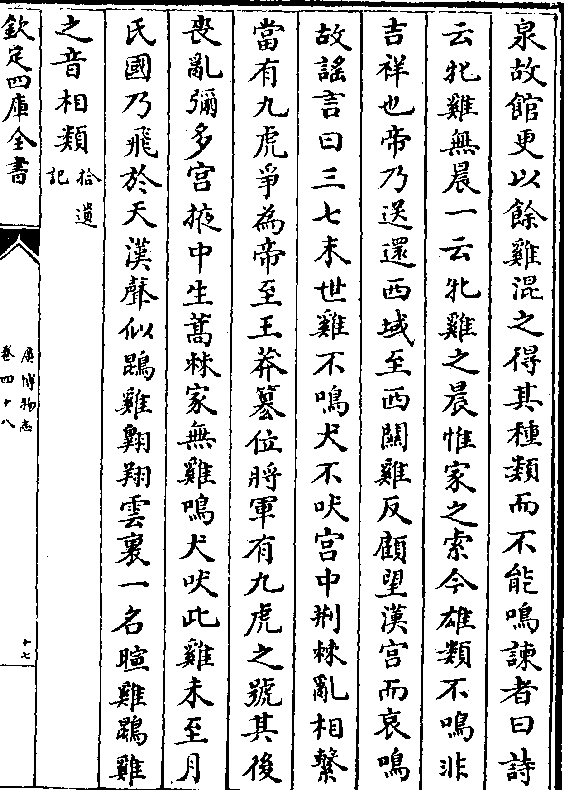 泉故館更以餘雞混之得其種類而不能鳴諫者曰詩
云牝雞無晨一云牝雞之晨惟家之索今雄類不鳴非
吉祥也帝乃送還西域至西關雞反顧望漢宮而哀鳴
故謠言曰三七末世雞不鳴犬不吠宮中荆棘亂相繫
當有九虎爭為帝至王莽篡位將軍有九虎之號其後
喪亂彌多宮掖中生蒿棘家無雞鳴犬吠此雞未至月
氏國乃飛於天漢聲似鵾雞翺翔雲裏一名暄雞鵾雞
之音相類拾遺
記
欽定四庫全書
廣博物志
卷四十八
十七